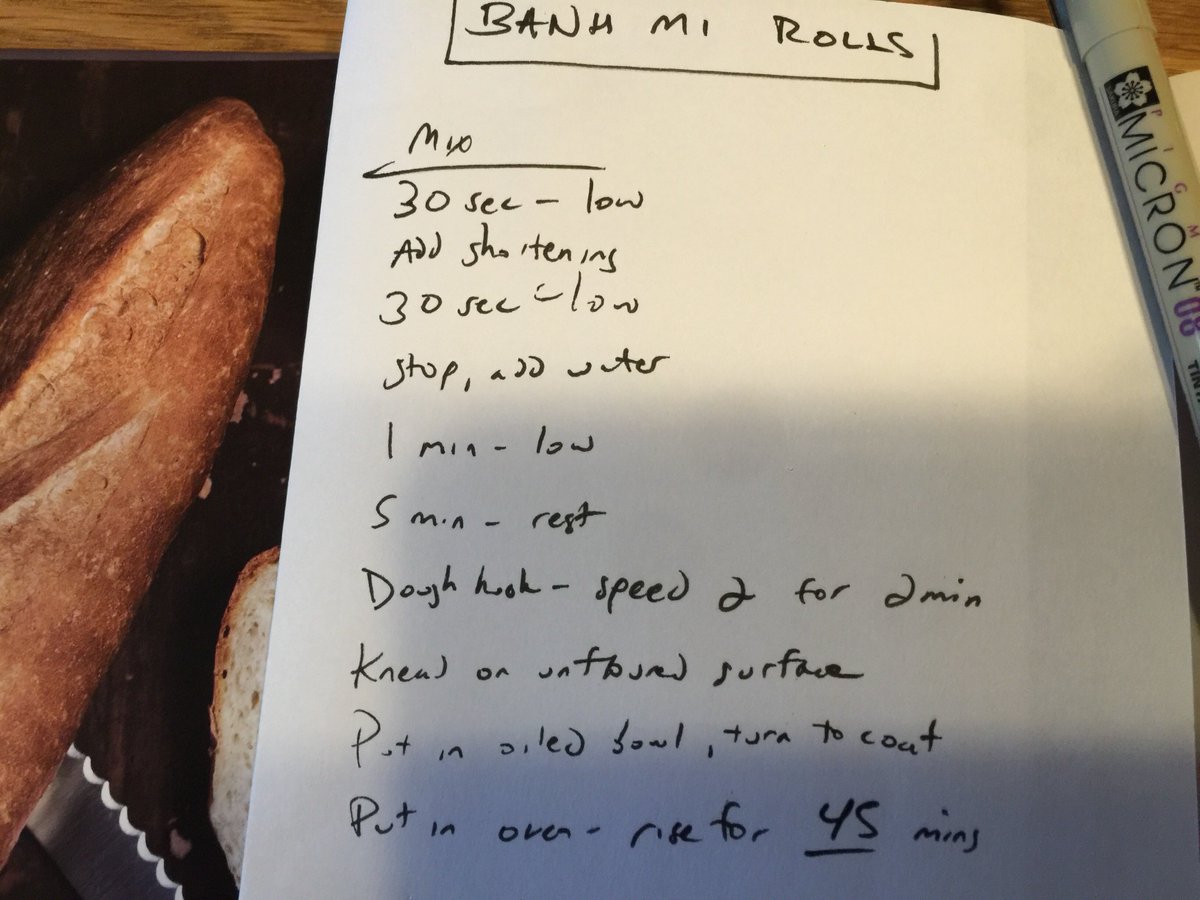 BANH MI ROLLS
Mix
30 sec - low
Add shortening
30 sec - low
stop, add water
1 min - low
5 min - rest
Dough hook - speed 2 for 2 min
Knead on unfloured surface
Put in oiled bowl, turn to coat
Put in oven - rise for 45 mins
PIGM
MICRON
08